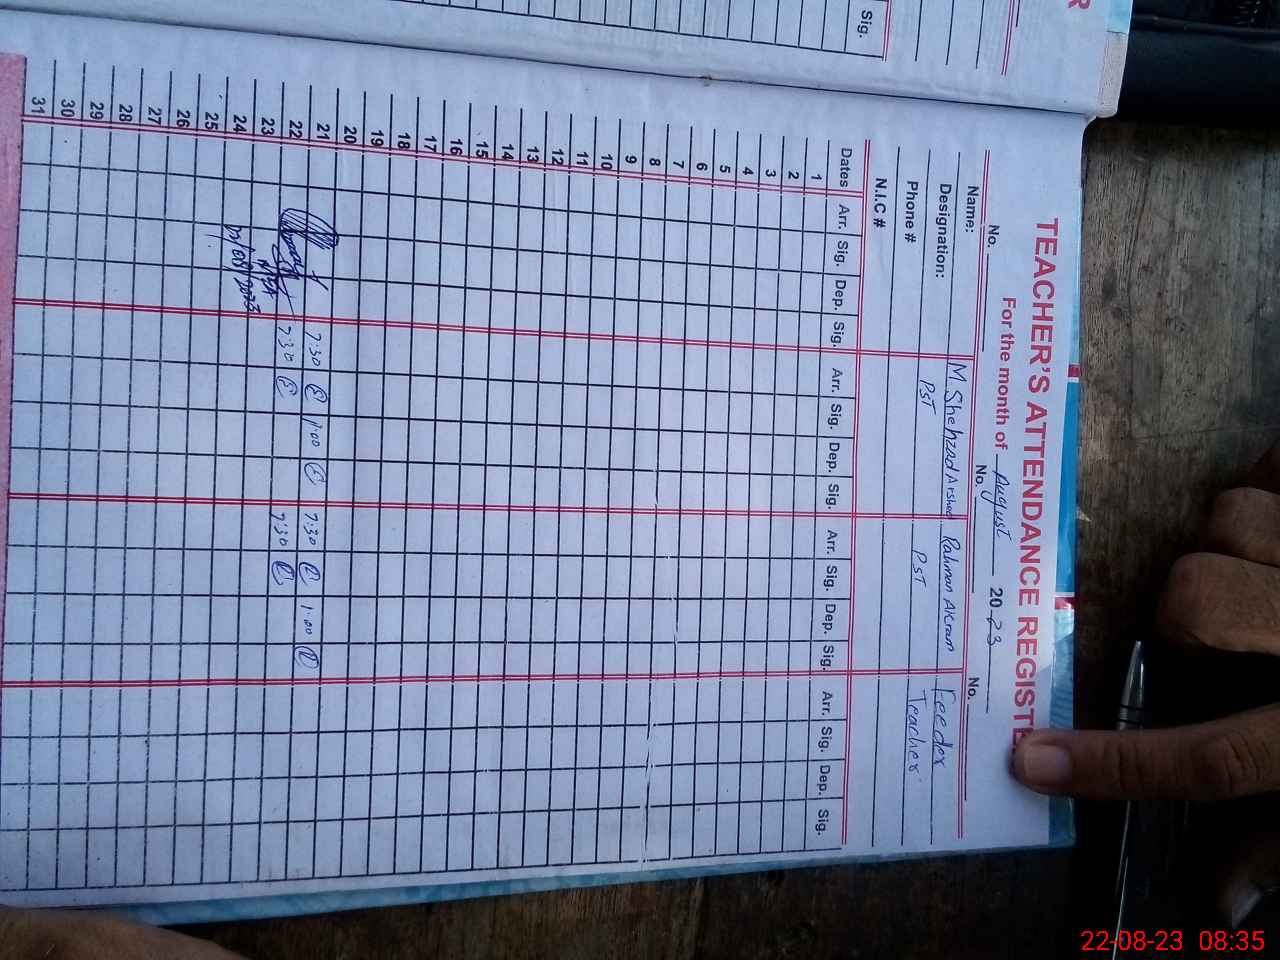 R
Sig.
TEACHER'S ATTENDANCE REGISTE
For the month of August 2023
No. No. No.
Name: M. Shehzad Arshad Rahman Akram Feeder
Designation: PST PST Teacher
Phone #
N.I.C #
Dates Arr. Sig. Dep. Sig. Arr. Sig. Dep. Sig. Arr. Sig. Dep. Sig. Arr. Sig. Dep. Sig.
1
2
3
4
5
6
7
8
9
10
11
12
13
14
15
16
17
18
19
20
21 7:30 1:00 7:30 1:00
22 7:30 7:30
23
24
25
26
27
28
29
30
31
22-08-23 08:35